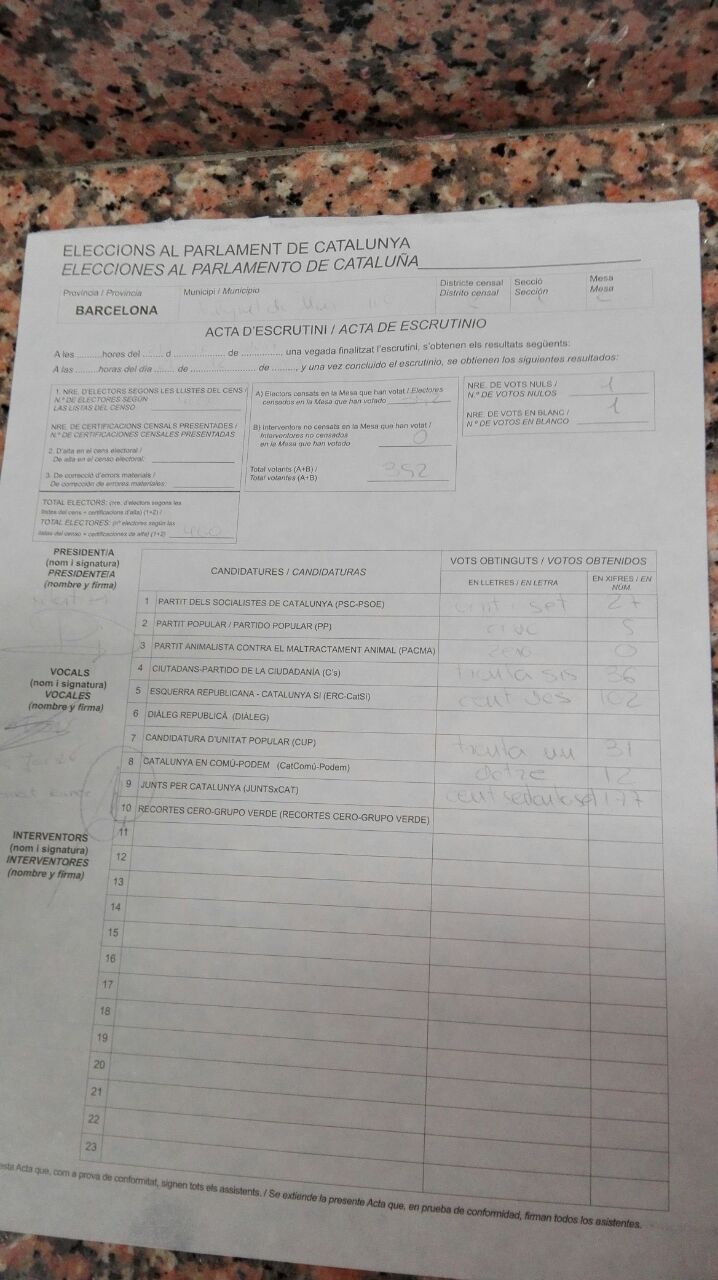 ELECCIONS AL PARLAMENT DE CATALUNYA
ELECCIONES AL PARLAMENTO DE CATALUÑA
Província / Provincia
BARCELONA
Municipi / Municipio
Districte censal
Distrito censal
Secció
Sección
Mesa
Mesa
ACTA D'ESCRUTINI / ACTA DE ESCRUTINIO
A les ........hores del ...... d ................ de ............., una vegada finalitzat l'escrutini, s'obtenen els resultats següents:
A las ........horas del día ...... de ............... de ........, y una vez concluido el escrutinio, se obtienen los siguientes resultados:
1. NRE. D'ELECTORS SEGONS LES LLISTES DEL CENS /
N.º DE ELECTORES SEGÚN
LAS LISTAS DEL CENSO
NRE. DE CERTIFICACIONS CENSALS PRESENTADES /
N.º DE CERTIFICACIONES CENSALES PRESENTADAS
2. D'alta en el cens electoral /
De alta en el censo electoral:
3. De correcció d'errors materials /
De corrección de errores materiales:
TOTAL ELECTORS: (nre. d'electors segons les
llistes del cens + certificacions d'alta) (1+2) /
TOTAL ELECTORES: (nº electores según las
listas del censo + certificaciones de alta) (1+2)
A) Electors censats en la Mesa que han votat / Electores
censados en la Mesa que han votado
B) Interventors no censats en la Mesa que han votat /
Interventores no censados
en la Mesa que han votado 0
Total votants (A+B) /
Total votantes (A+B) 392
NRE. DE VOTS NULS /
N.º DE VOTOS NULOS 1
NRE. DE VOTS EN BLANC /
N.º DE VOTOS EN BLANCO 1
PRESIDENT/A
(nom i signatura)
PRESIDENTE/A
(nombre y firma)
VOCALS
(nom i signatura)
VOCALES
(nombre y firma)
INTERVENTORS
(nom i signatura)
INTERVENTORES
(nombre y firma)
CANDIDATURES / CANDIDATURAS
VOTS OBTINGUTS / VOTOS OBTENIDOS
EN LLETRES / EN LETRA
EN XIFRES / EN NÚM.
1 PARTIT DELS SOCIALISTES DE CATALUNYA (PSC-PSOE) 27
2 PARTIT POPULAR / PARTIDO POPULAR (PP) cinc 5
3 PARTIT ANIMALISTA CONTRA EL MALTRACTAMENT ANIMAL (PACMA) zero 0
4 CIUTADANS-PARTIDO DE LA CIUDADANÍA (C's) trenta sis 36
5 ESQUERRA REPUBLICANA - CATALUNYA SÍ (ERC-CatSí) cent dos 102
6 DIÀLEG REPUBLICÀ (DIÀLEG)
7 CANDIDATURA D'UNITAT POPULAR (CUP) trenta un 31
8 CATALUNYA EN COMÚ-PODEM (CatComú-Podem) dotze 12
9 JUNTS PER CATALUNYA (JUNTSxCAT) 177
10 RECORTES CERO-GRUPO VERDE (RECORTES CERO-GRUPO VERDE)
11
12
13
14
15
16
17
18
19
20
21
22
23
esta Acta que, com a prova de conformitat, signen tots els assistents. / Se extiende la presente Acta que, en prueba de conformidad, firman todos los asistentes.